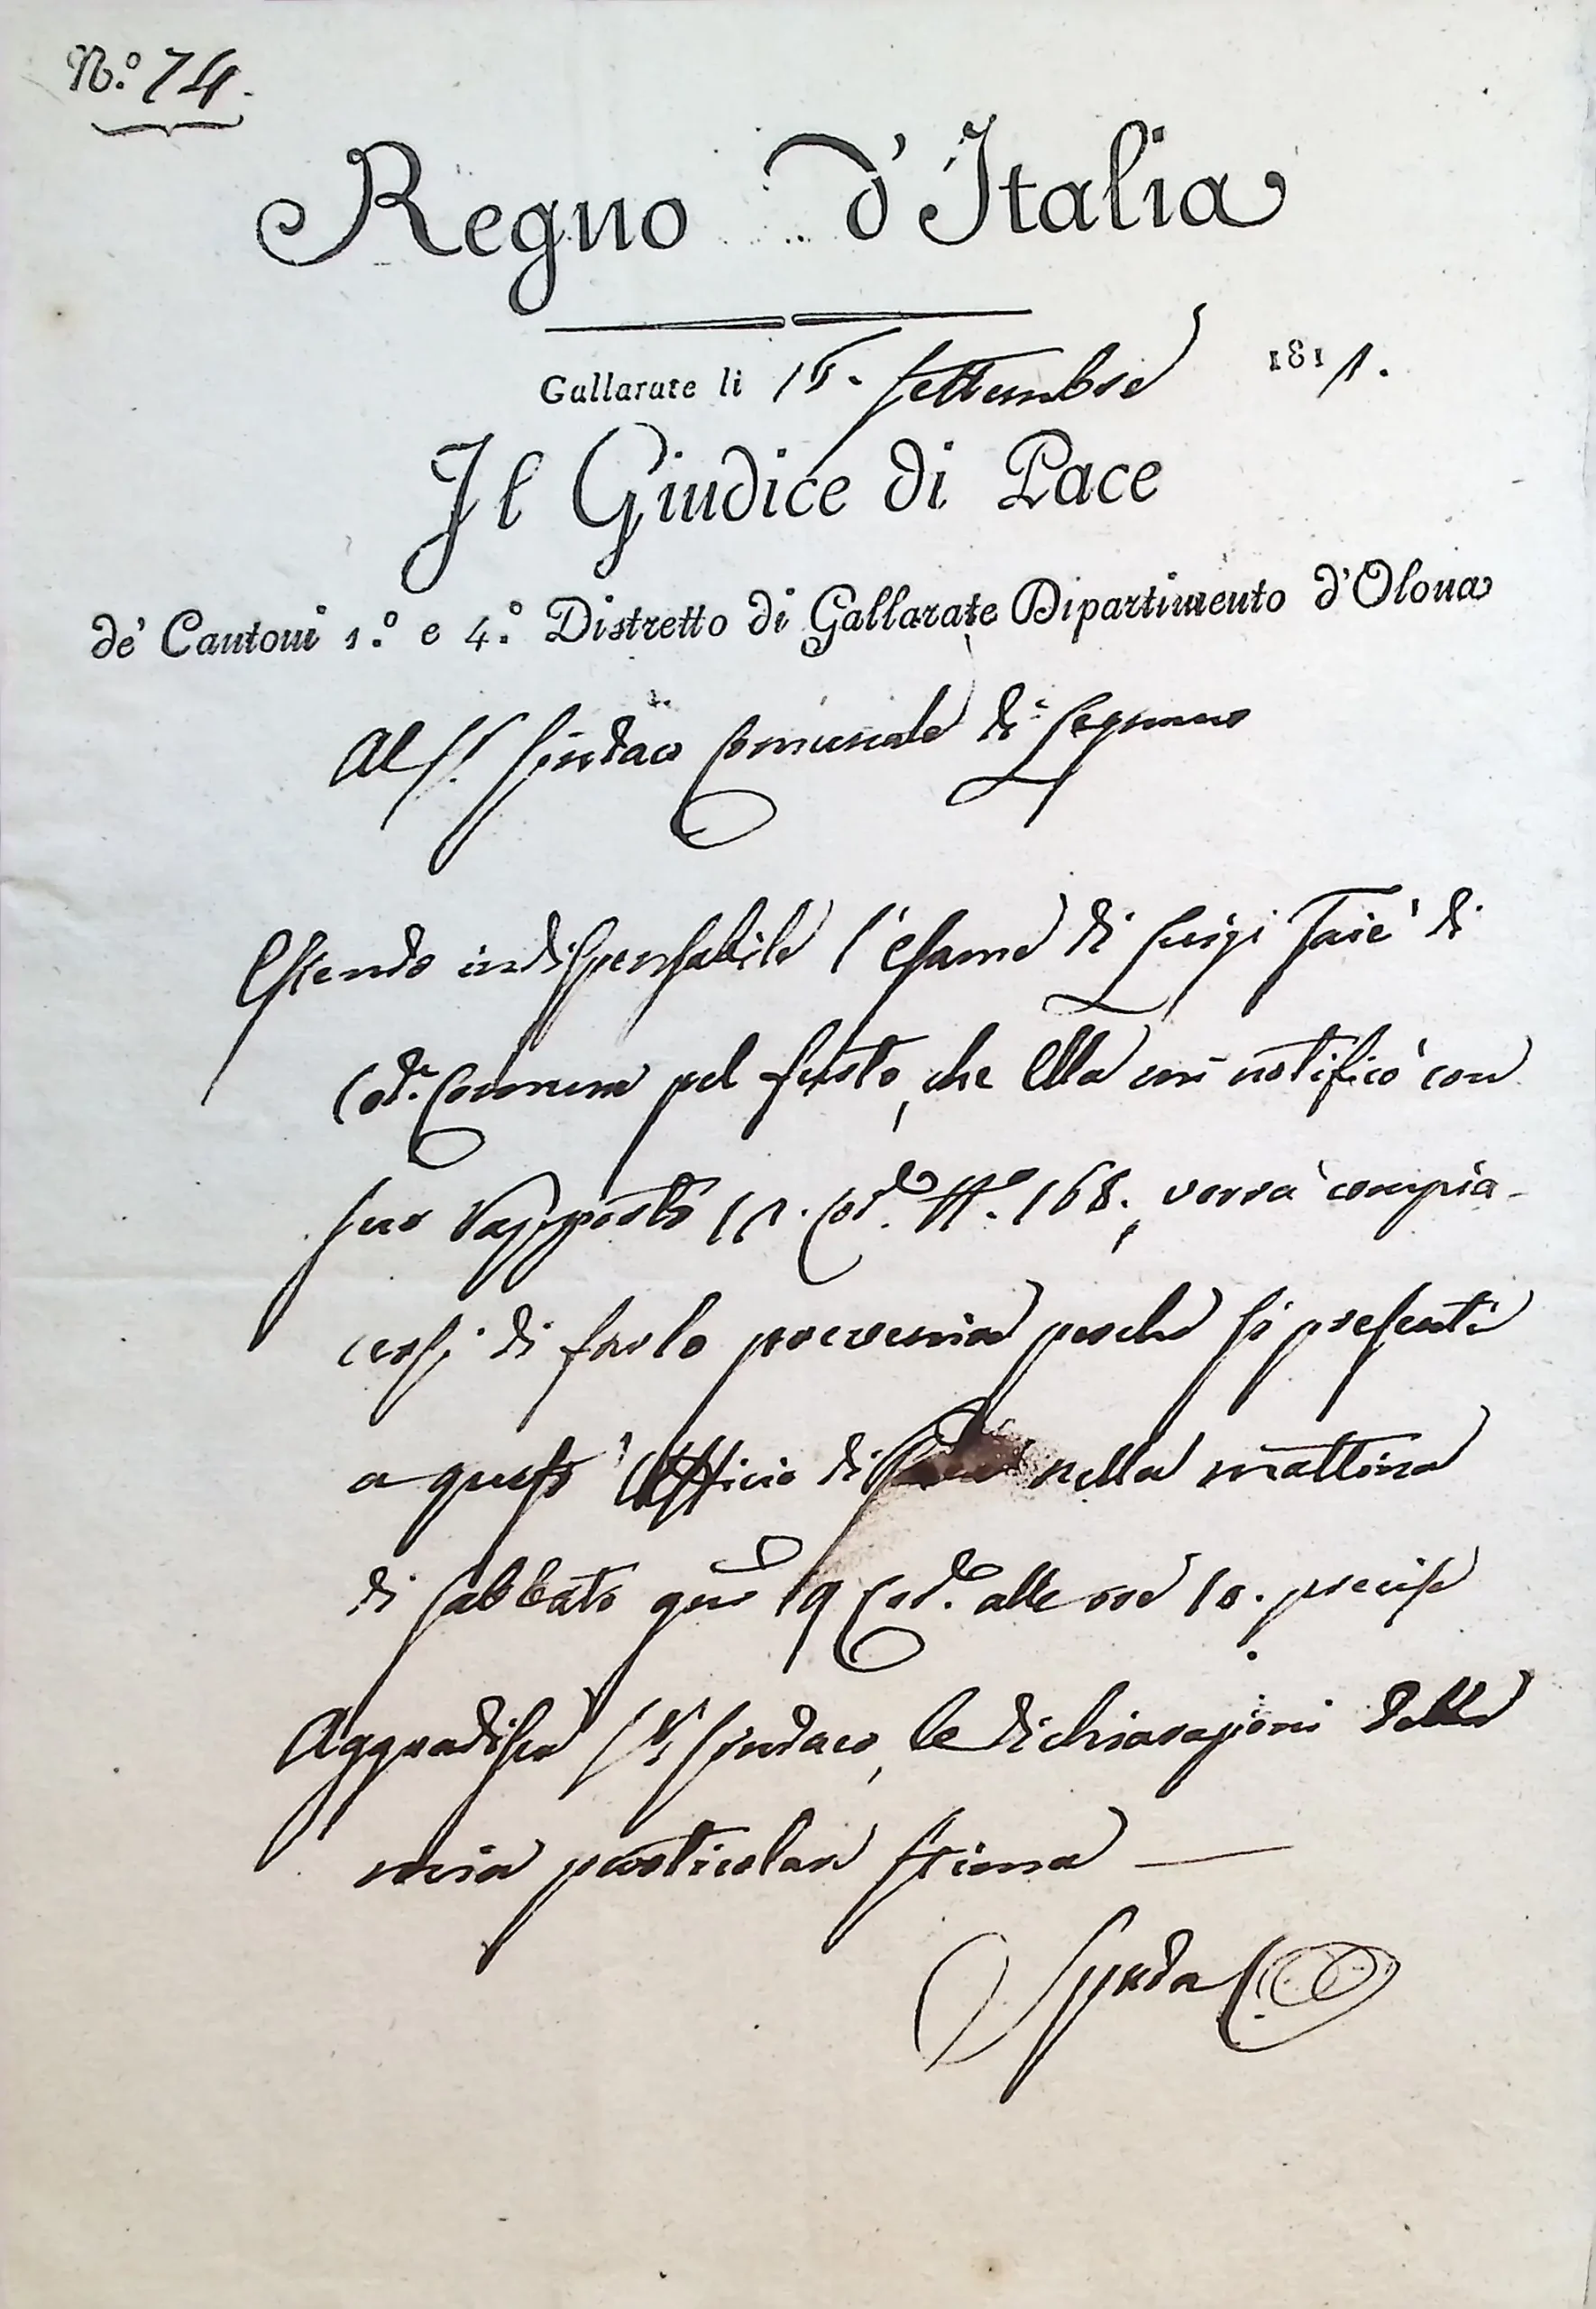 N.° 74.
Regno d'Italia
Gallarate li 15. Settembre 1811.
Il Giudice di Pace
de' Cantoni 1.° e 4.° Distretto di Gallarate Dipartimento d'Olona
Al S.r Sindaco Comunale di Legnano
Essendo indispensabile l'esame di Luigi Taiè di
cod.a Comune pel furto, che Ella mi notificò con
suo Rapporto 11. cod.e N.° 168., vorrà compia-
cersi di farlo prevenire perché si presenti
a quest'Ufficio di nella mattina
di sabbato giorno 19 cod.e alle ore 10. precise
Aggradisca Sr. Sindaco, le dichiarazioni della
mia particolare stima —